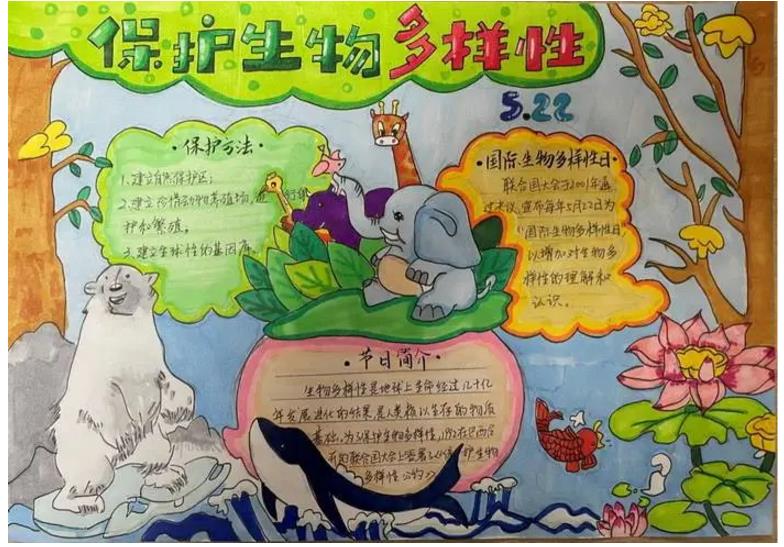 保护生物多样性
5.22
·保护方法·
1.建立自然保护区；
2.建立珍惜动物养殖场，进行保
护和繁殖。
3.建立全球性的基因库。
·国际生物多样性日·
联合国大会于2001年通
过决议，宣布每年5月22日为
"国际生物多样性日
以增加对生物多
样性的理解和
认识。
·节日简介·
生物多样性是地球上生命经过几十亿
年发展进化的结果是人类赖以生存的物质
基础，为了保护生物多样性，
开的联合国大会上签署了
护生物
多样性公约》